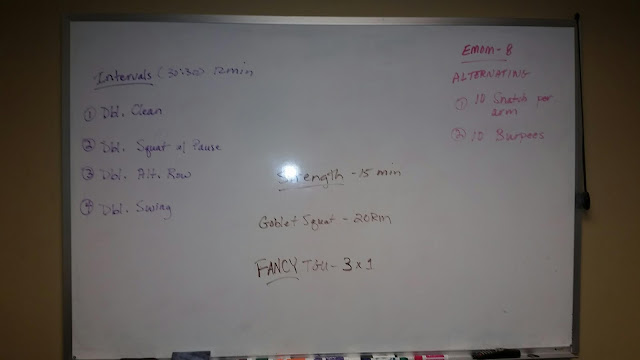 Intervals (30:30) 12min
① Dbl. Clean
② Dbl. Squat w/ Pause
③ Dbl. Alt. Row
④ Dbl. Swing
Strength - 15 min
Goblet Squat - 20RM
FANCY TGU - 3 x 1
EMOM - 8
ALTERNATING
① 10 Snatch per
arm
② 10 Burpees